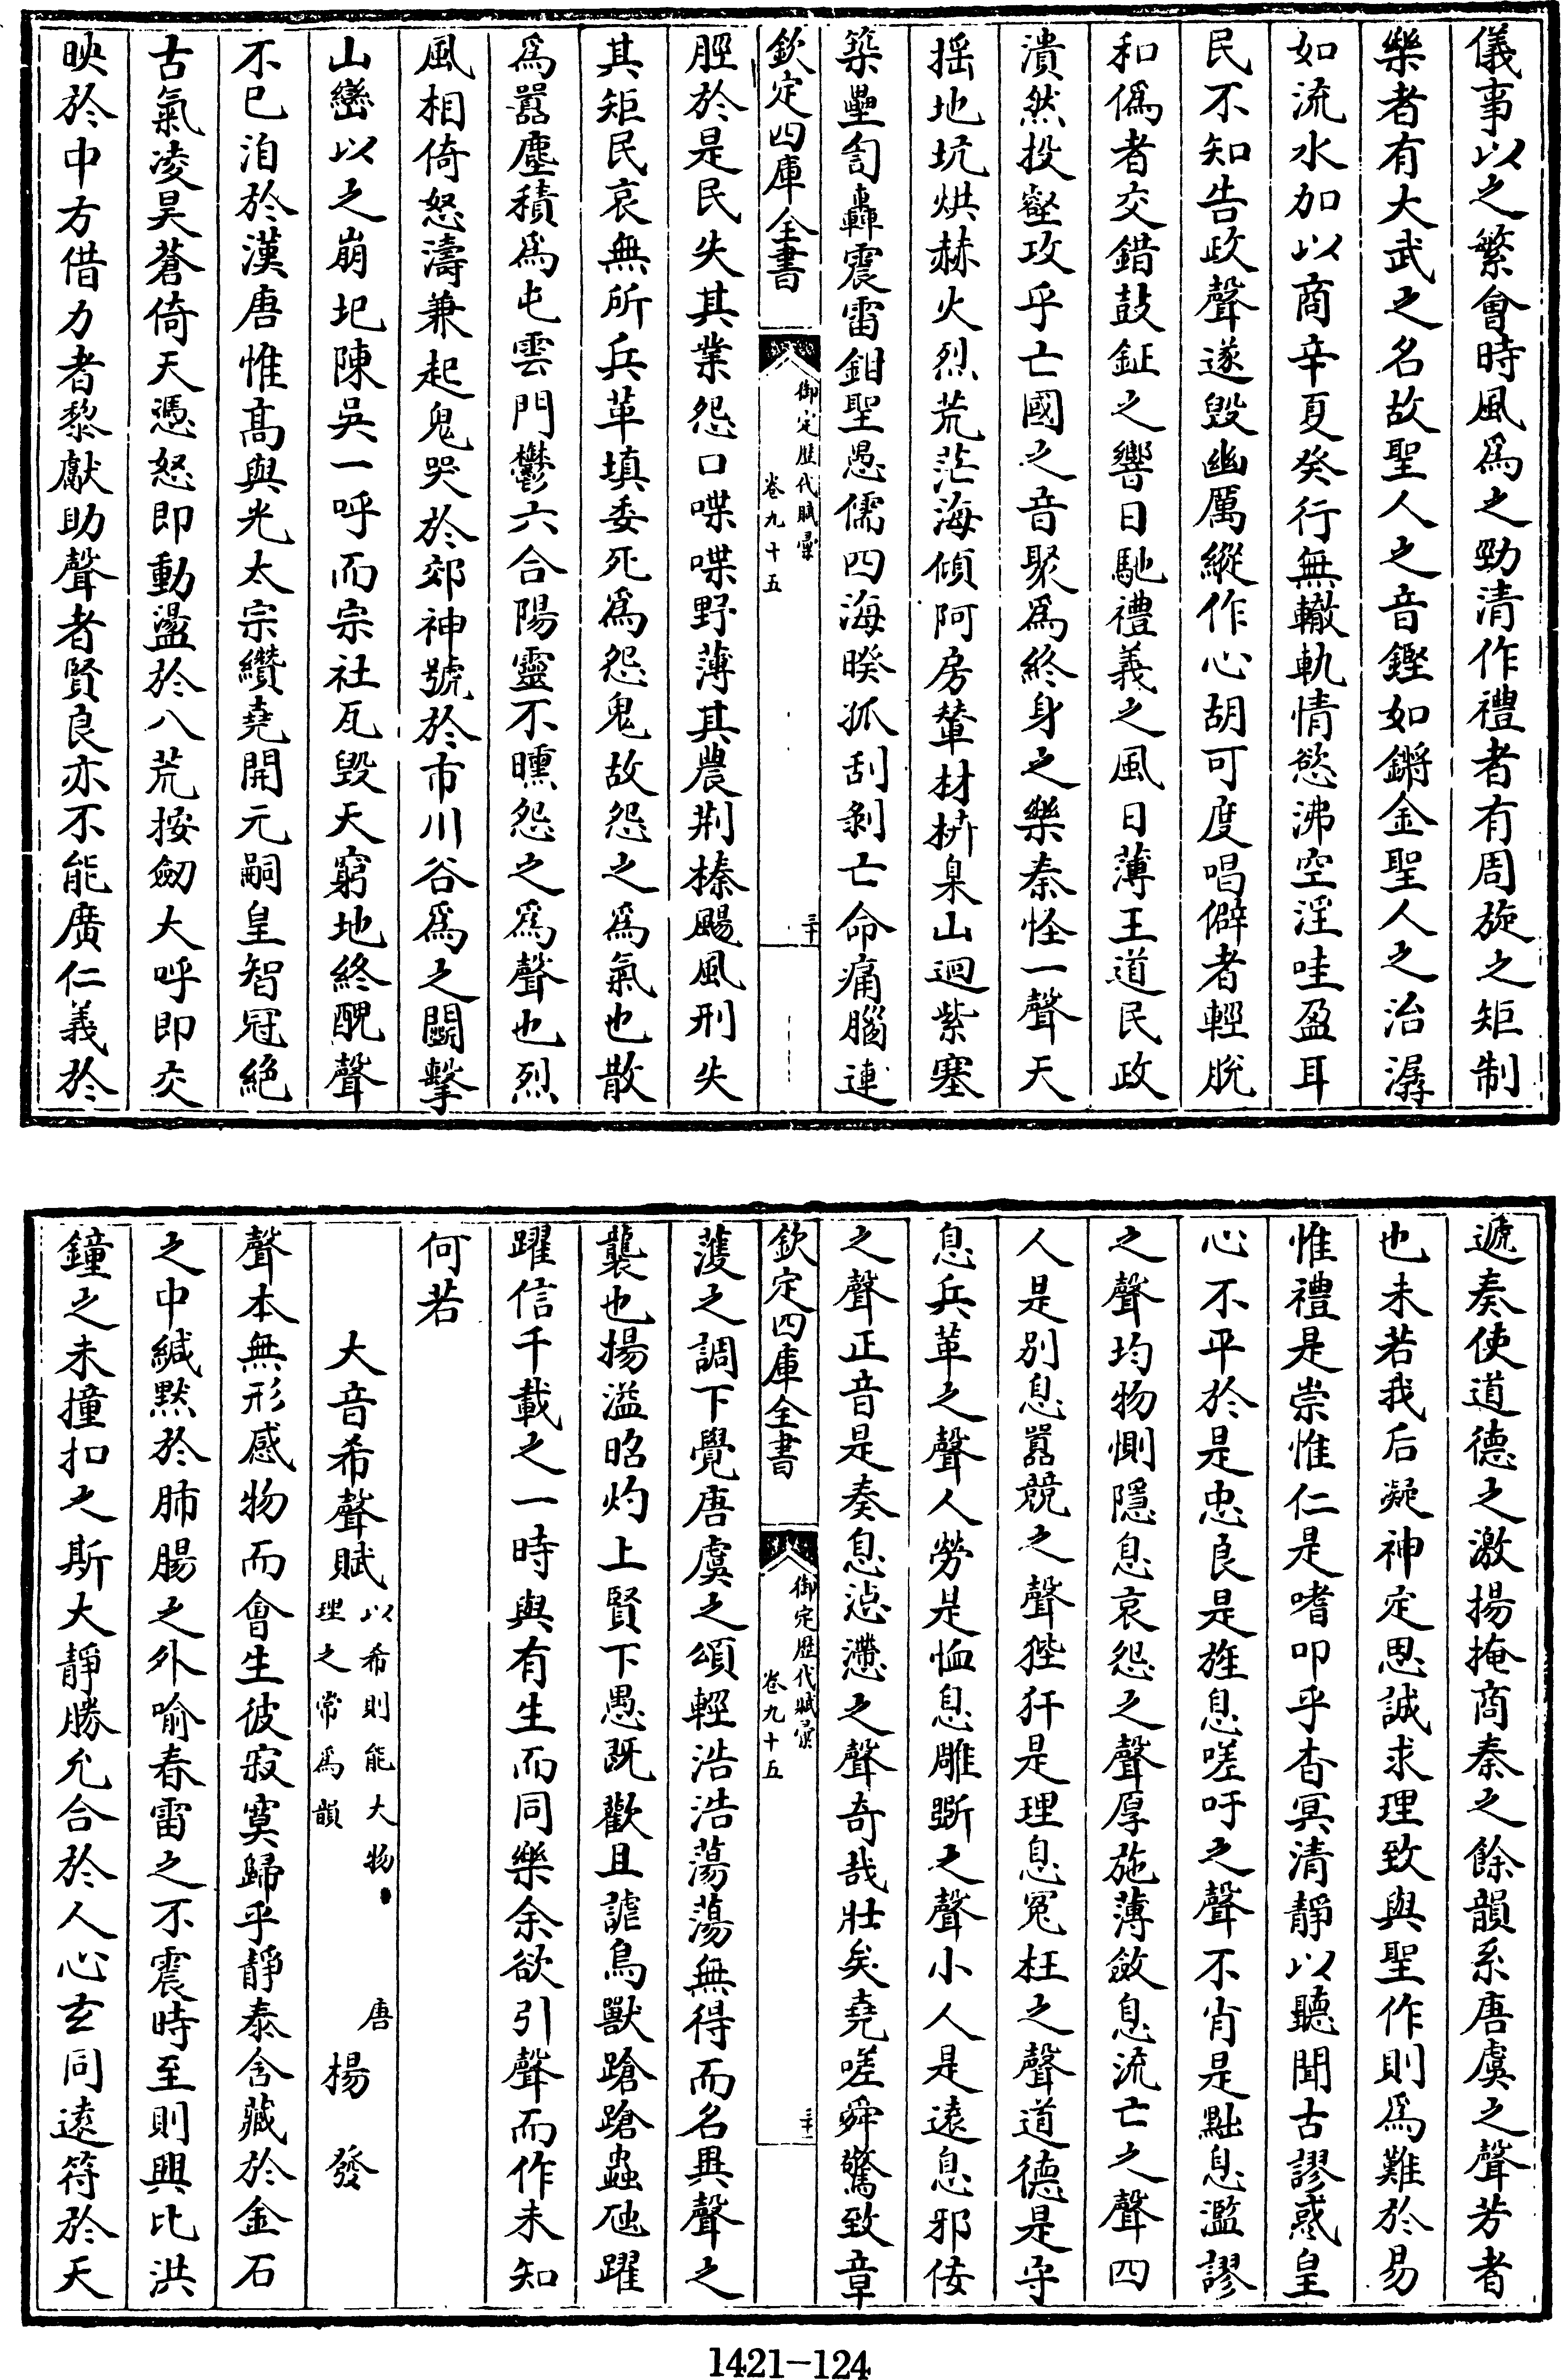 儀事以之繁會時風爲之勁清作禮者有周旋之矩制
樂者有大武之名故聖人之音鏗如鏘金聖人之治潺
如流水加以商辛夏癸行無轍軌情慾沸空淫哇盈耳
民不知告政聲遂毀幽厲縱作心胡可度唱僻者輕脫
和僞者交錯鼓鉦之響日馳禮義之風日薄王道民政
潰然投壑攻乎亡國之音聚爲終身之樂秦怪一聲天
搖地坑烘赫火烈荒茫海傾阿房輦材栟臬山迴紫塞
築壘訇轟震雷鉗聖愚儒四海睽孤刮剝亡命痛腦連
欽定四庫全書
御定歷代賦彙
卷九十五
三十
脛於是民失其業怨口喋喋野薄其農荆榛颺風刑失
其矩民哀無所兵革填委死爲怨鬼故怨之爲氣也散
爲囂塵積爲屯雲門鬱六合陽靈不曛怨之爲聲也烈
風相倚怒濤兼起鬼哭於郊神號於市川谷爲之鬭擊
山巒以之崩圯陳吳一呼而宗社瓦毀天窮地終醜聲
不已洎於漢唐惟高與光太宗纘堯開元嗣皇智冠絶
古氣凌昊蒼倚天憑怒即動盪於八荒按劒大呼即交
映於中方借力者黎獻助聲者賢良亦不能廣仁義於
遞奏使道德之激揚掩商秦之餘韻系唐虞之聲芳者
也未若我后凝神定思誠求理致與聖作則爲難於易
惟禮是崇惟仁是嗜叩乎杳冥清靜以聽聞古謬惑皇
心不平於是忠良是旌息嗟吁之聲不肖是黜息濫謬
之聲均物惻隱息哀怨之聲厚施薄斂息流亡之聲四
人是別息囂競之聲狴犴是理息冤枉之聲道德是守
息兵革之聲人勞是恤息雕斲之聲小人是遠息邪佞
之聲正音是奏息惉懘之聲奇哉壯矣堯嗟舜驚致章
欽定四庫全書
御定歷代賦彙
卷九十五
三十一
濩之調下覺唐虞之頌輕浩浩蕩蕩無得而名異聲之
襲也揚溢昭灼上賢下愚既歡且謔鳥獸蹌蹌蟲虺躍
躍信千載之一時與有生而同樂余欲引聲而作未知
何若
大音希聲賦 以希則能大物理之常爲韻 唐 楊發
聲本無形感物而會生彼寂寞歸乎靜泰含藏於金石
之中緘默於肺腸之外喻春雷之不震時至則興比洪
鐘之未撞扣之斯大靜勝允合於人心玄同遠符於天
1421-124